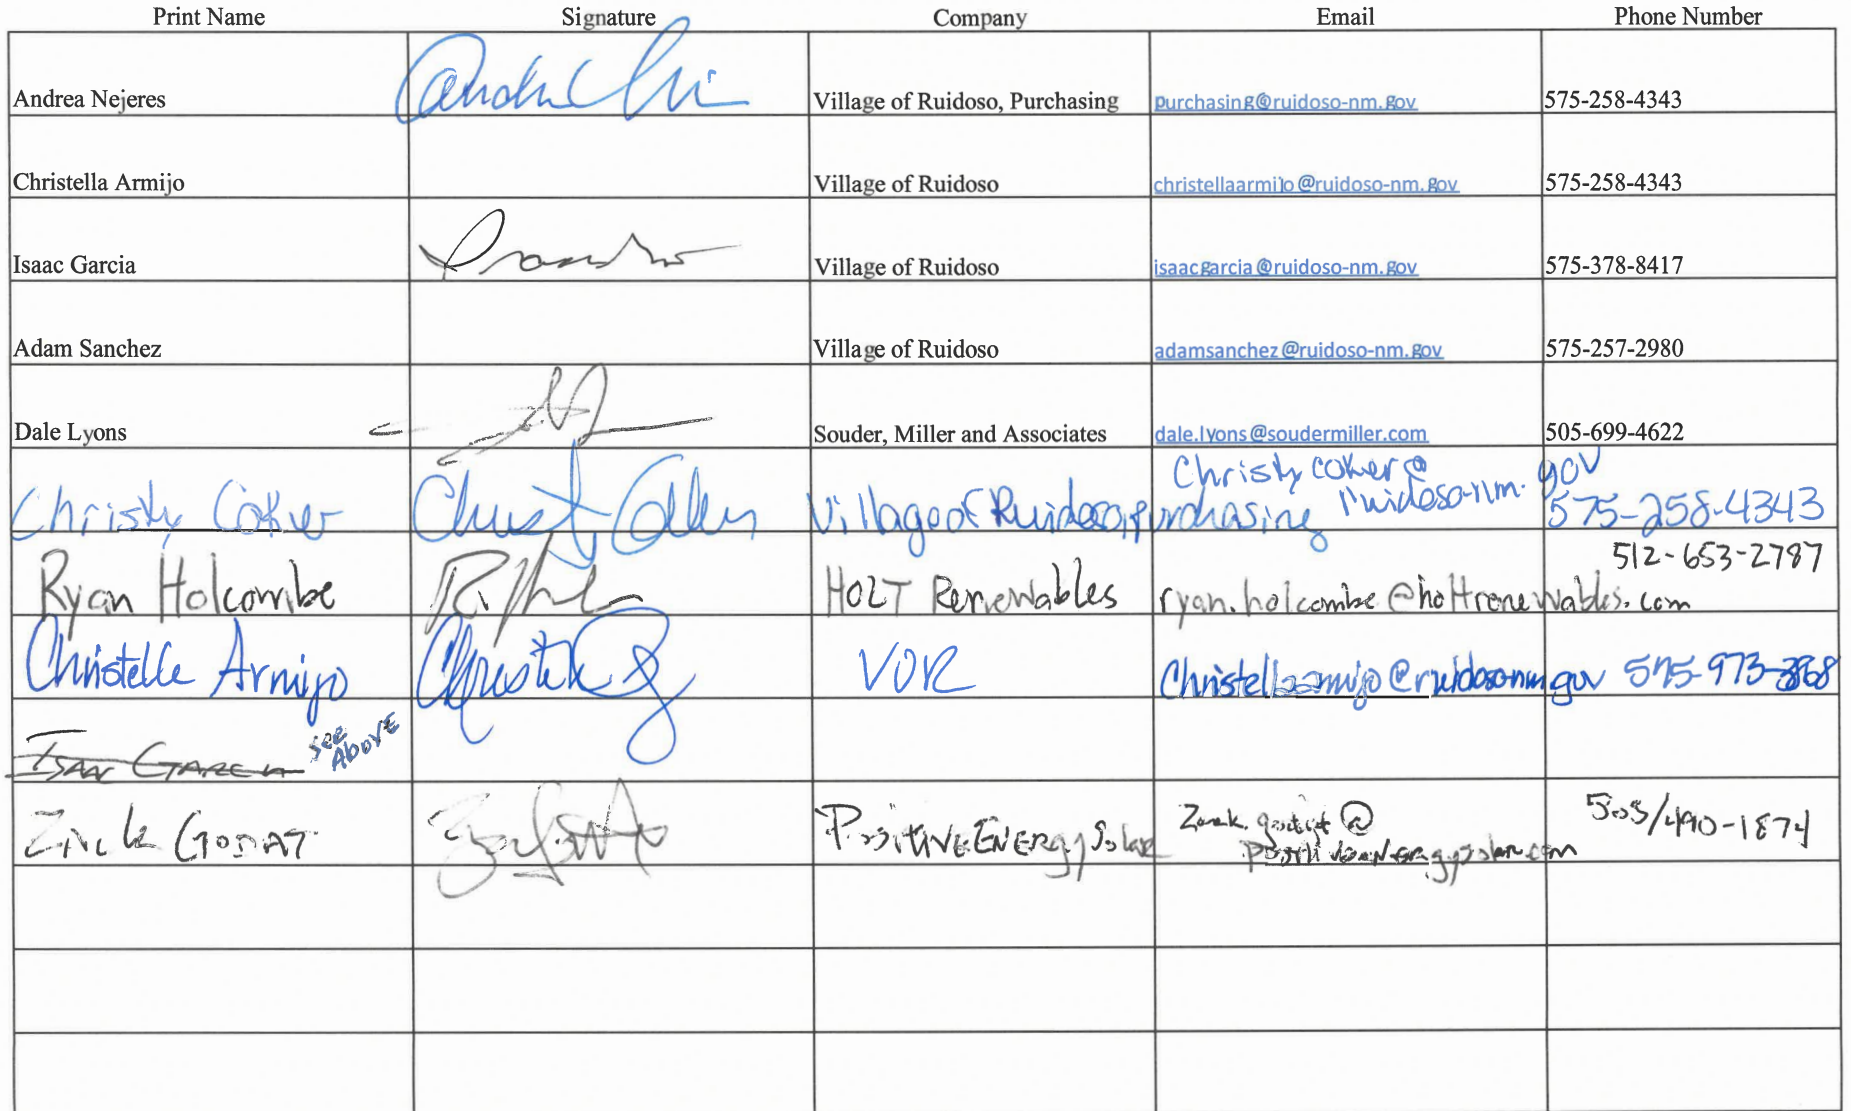 Print Name Signature Company Email Phone Number
Andrea Nejeres Village of Ruidoso, Purchasing purchasing@ruidoso-nm.gov 575-258-4343
Christella Armijo Village of Ruidoso christellaarmijo@ruidoso-nm.gov 575-258-4343
Isaac Garcia Village of Ruidoso isaacgarcia@ruidoso-nm.gov 575-378-8417
Adam Sanchez Village of Ruidoso adamsanchez@ruidoso-nm.gov 575-257-2980
Dale Lyons Souder, Miller and Associates dale.lyons@soudermiller.com 505-699-4622
Christy Coker Village of Ruidoso, purchasing Christycoker@
ruidoso-nm.gov 575-258-4343
512-653-2787
Ryan Holcombe HOLT Renewables ryan.holcombe@holtrenewables.com
Christelle Armijo VOR Christellaarmijo@ruidoso-nm.gov 575-973-
Isaac Garcia See
Above
505/490-1874
Zack Positive Energy Solar @
positiveenergysolar.com